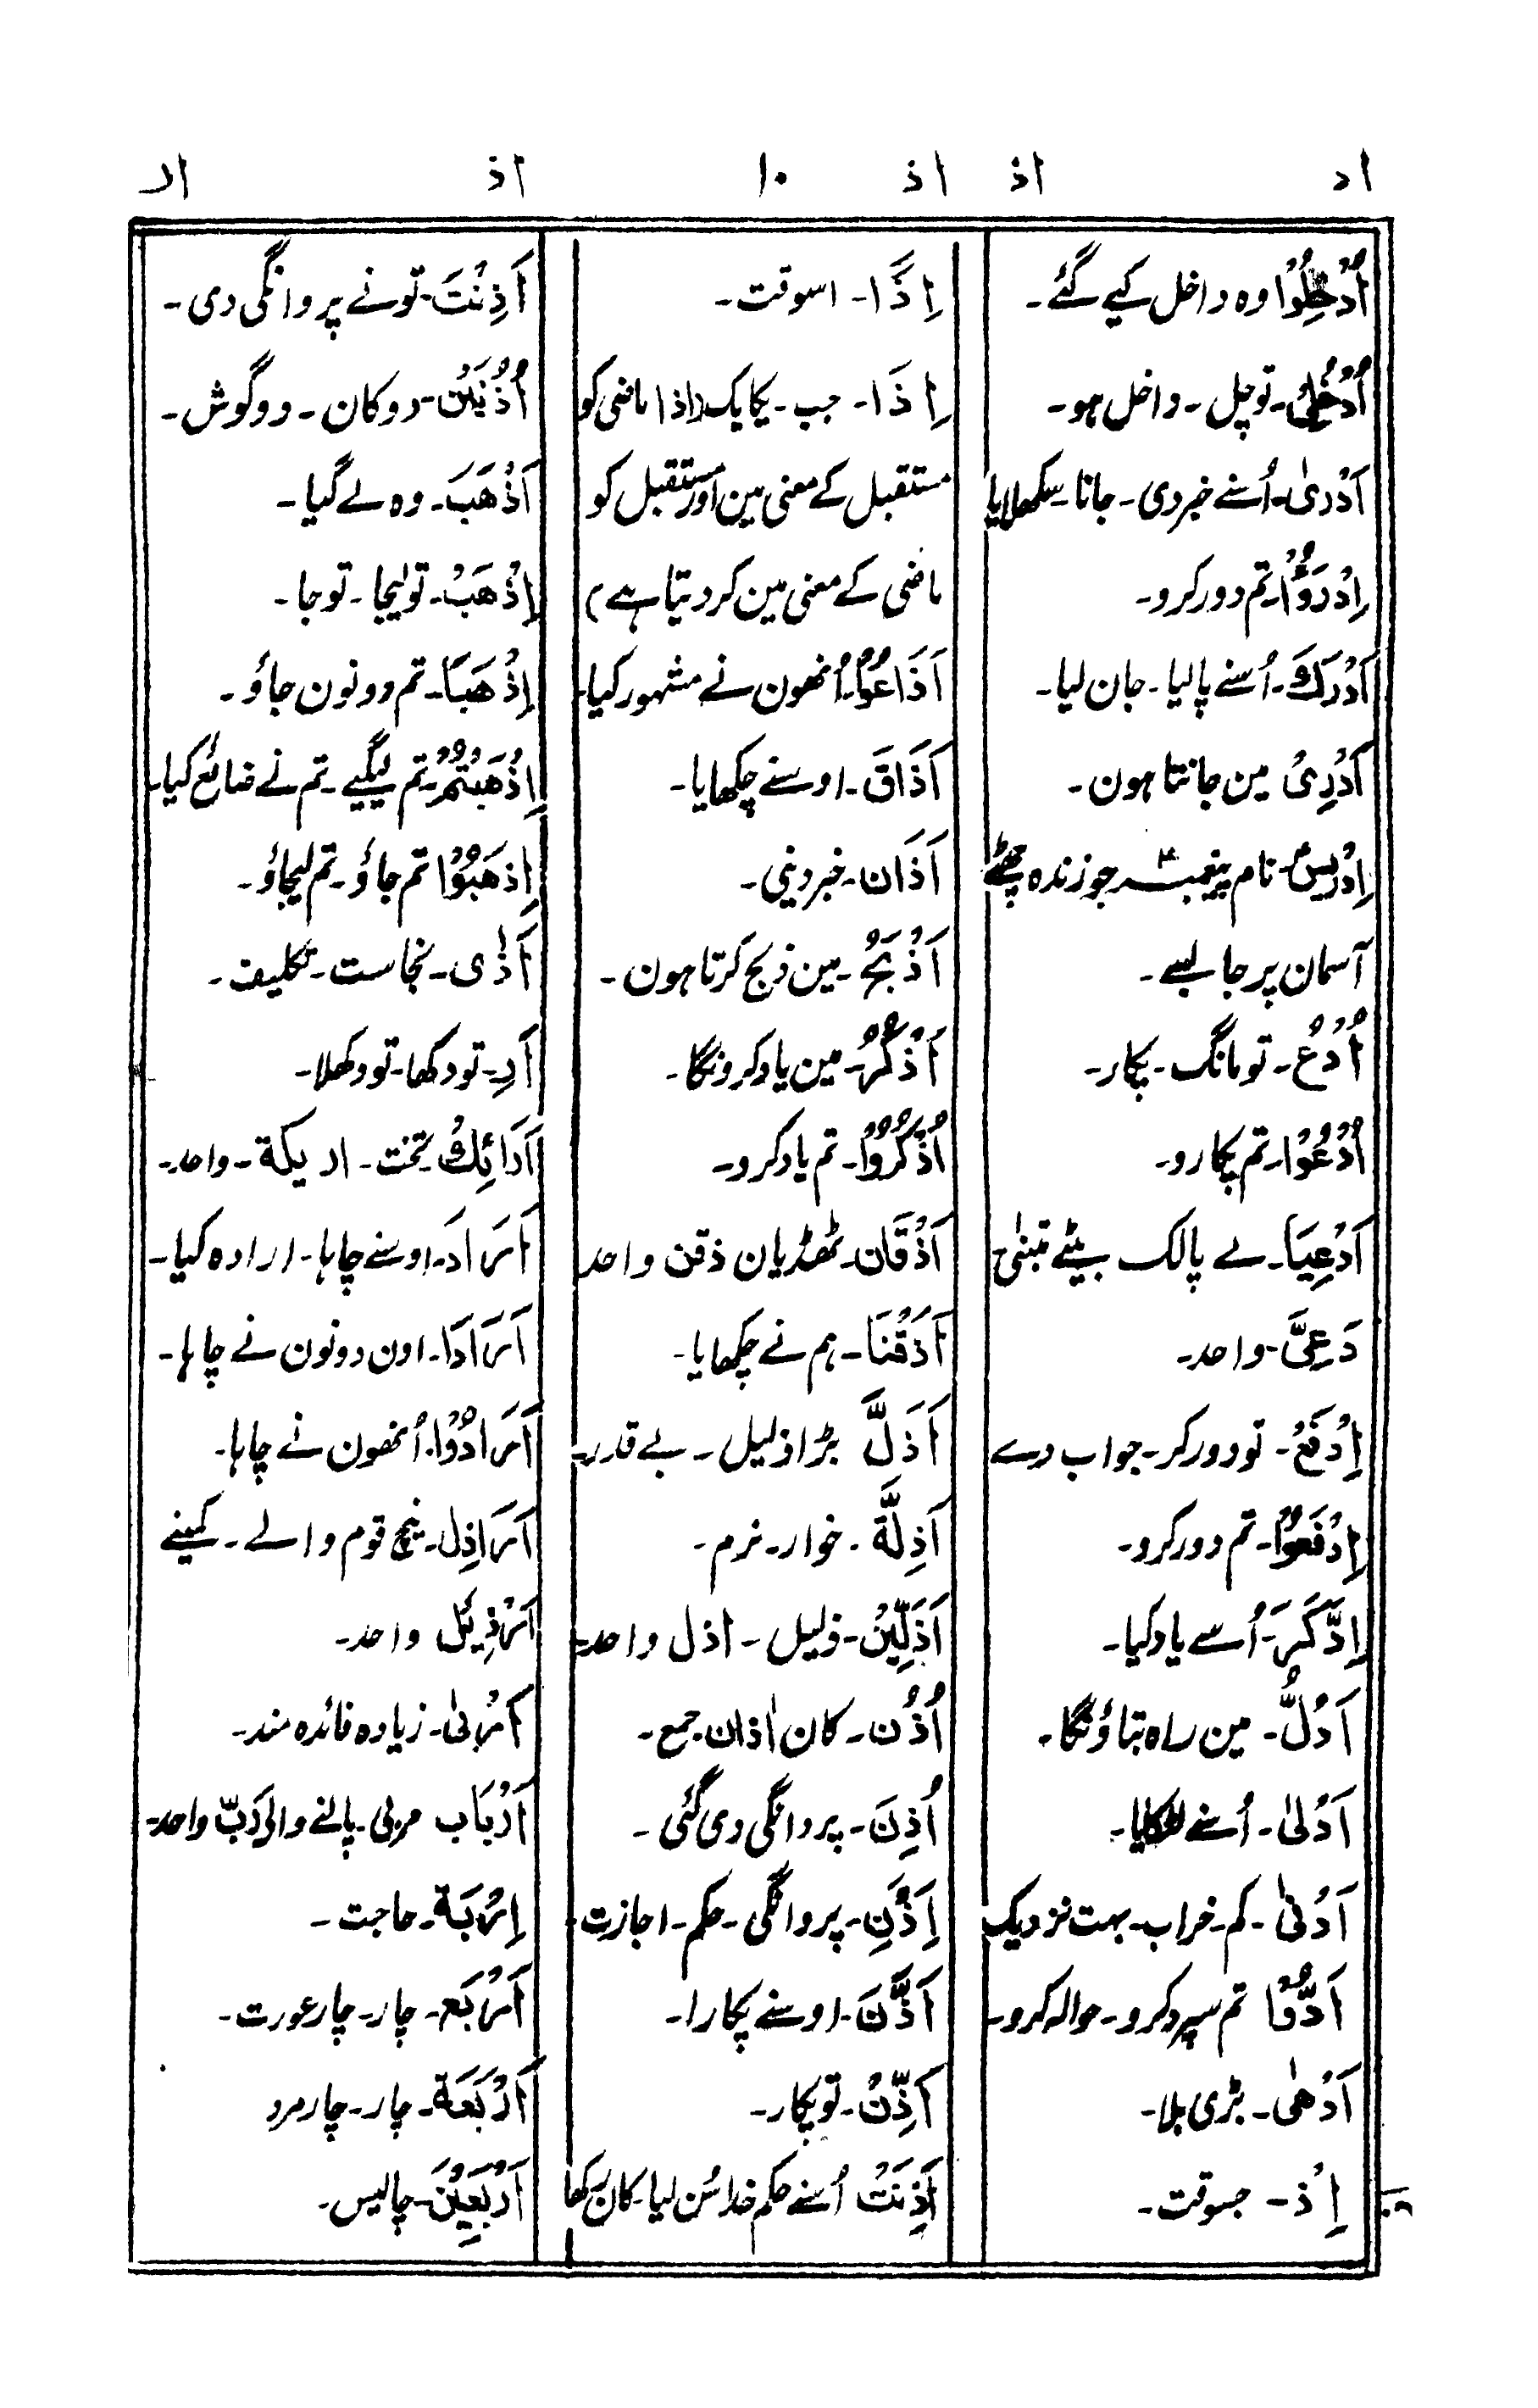 اد اذ اذ ۱۰ اذ ار
اُدْخِلُوْا وہ داخل کیے گئے۔
اُدْخُلْ۔ تو چل۔ داخل ہو۔
اَدْرٰی۔ اُسنے خبر دی۔ جانا۔ سکھلایا
اِدْرَؤُا۔ تم دور کرو۔
اَدْرَكَ۔ اُسنے پالیا۔ جان لیا۔
اَدْرِیْ مین جانتا ہون۔
اِدْرِیْسُ۔ نام پیغمبر جو زندہ
آسمان پر جا بسے۔
اُدْعُ۔ تو مانگ۔ پکار۔
اُدْعُوْا۔ تم پکارو۔
اَدْعِیَا۔ لے پالک بیٹے متبنیٰ
دَعِیَّ۔ واحد۔
اِدْفَعْ۔ تو دور کر۔ جواب دے
اِدْفَعُوْا۔ تم دور کرو۔
اِدَّكَرَ۔ اُسے یاد کیا۔
اَدُلُّ۔ مین راہ بتاؤنگا۔
اَدْلٰی۔ اُسنے لٹکایا۔
اَدْنٰی۔ کم۔ خراب۔ بہت نزدیک
اَدُّوْا تم سپرد کرو۔ حوالہ کرو۔
اَدْهٰی۔ بڑی بلا۔
اِذْ۔ جسوقت۔
اِذًا۔ اسوقت۔
اِذَا۔ جب۔ یکایک (اذا ماضی کو
مستقبل کے معنی مین اور مستقبل کو
ماضی کے معنی مین کر دیتا ہے)
اَذَاعُوْا۔ اُنھون نے مشہور کیا۔
اَذَاقَ۔ اوسنے چکھایا۔
اَذَان۔ خبر دینی۔
اَذْبَحُ۔ مین ذبح کرتا ہون۔
اَذْكُرُ۔ مین یاد کرونگا۔
اُذْكُرُوْا۔ تم یاد کرو۔
اَذْقَان۔ ٹھڈیان ذقن واحد
اَذَقْنَا۔ ہم نے چکھایا۔
اَذَلَّ بڑا ذلیل۔ بے قدر۔
اَذِلَّة۔ خوار۔ نرم۔
اَذَلِّیْنُ۔ ذلیل۔ اذل واحد۔
اُذُن۔ کان اٰذان جمع۔
اُذِنَ۔ پروانگی دی گئی۔
اِذْنِ۔ پروانگی۔ حکم۔ اجازت۔
اَذَّنَ۔ اوسنے پکارا۔
اَذِّنْ۔ تو پکار۔
اَذِنَتْ اُسنے حکم خدا سُن لیا۔ کان رکھا
اَذِنْتَ۔ تونے پروانگی دی۔
اُذُنَیْن۔ دو کان۔ دو گوش۔
اَذْهَبَ۔ وہ لے گیا۔
اِذْهَبْ۔ تو لیجا۔ تو جا۔
اِذْهَبَا۔ تم دونون جاؤ۔
اِذْهَبْتُمْ۔ تم لیگیے۔ تم نے ضائع کیا۔
اِذْهَبُوْا تم جاؤ۔ تم لیجاؤ۔
اَذٰی۔ نجاست۔ تکلیف۔
اَرِ۔ تو دکھا۔ تو دکھلا۔
اَرَائِكُ۔ تخت۔ اریكة۔ واحد۔
اَرَادَ۔ اوسنے چاہا۔ ارادہ کیا۔
اَرَادَا۔ اون دونون نے چاہا۔
اَرَادُوْا۔ اُنھون نے چاہا۔
اَرَاذِل۔ نیچ قوم والے۔ کمینے
اَرْذِیْل واحد۔
اَرْبٰی۔ زیادہ فائدہ مند۔
اَرْبَاب مربی۔ پالنے والی رَبّ واحد۔
اِرْبَة۔ حاجت۔
اَرْبَع۔ چار۔ چار عورت۔
اَرْبَعَة۔ چار۔ چار مرد
اَرْبَعِیْنَ۔ چالیس۔